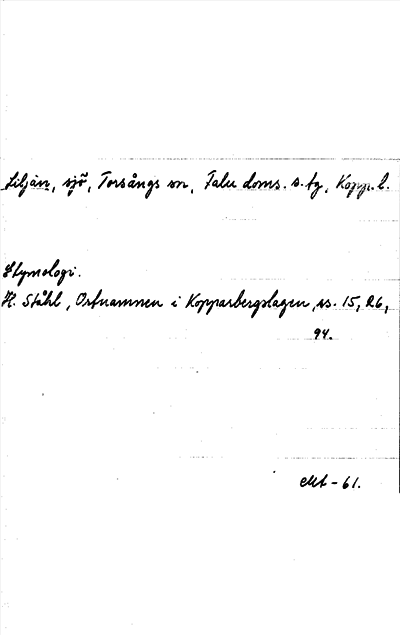 Liljan, sjö, Torsångs sn, Falu doms. s. tg, Kopp. l.
Etymologi.
H. Ståhl, Ortnamnen i Kopparbergslagen, ss. 15, 26,
94.
-61.